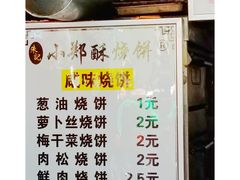 朱记
小郑酥烧饼
咸味烧饼
葱油烧饼 1元
萝卜丝烧饼 2元
梅干菜烧饼 2元
肉松烧饼 2元
鲜肉烧饼 2.5元